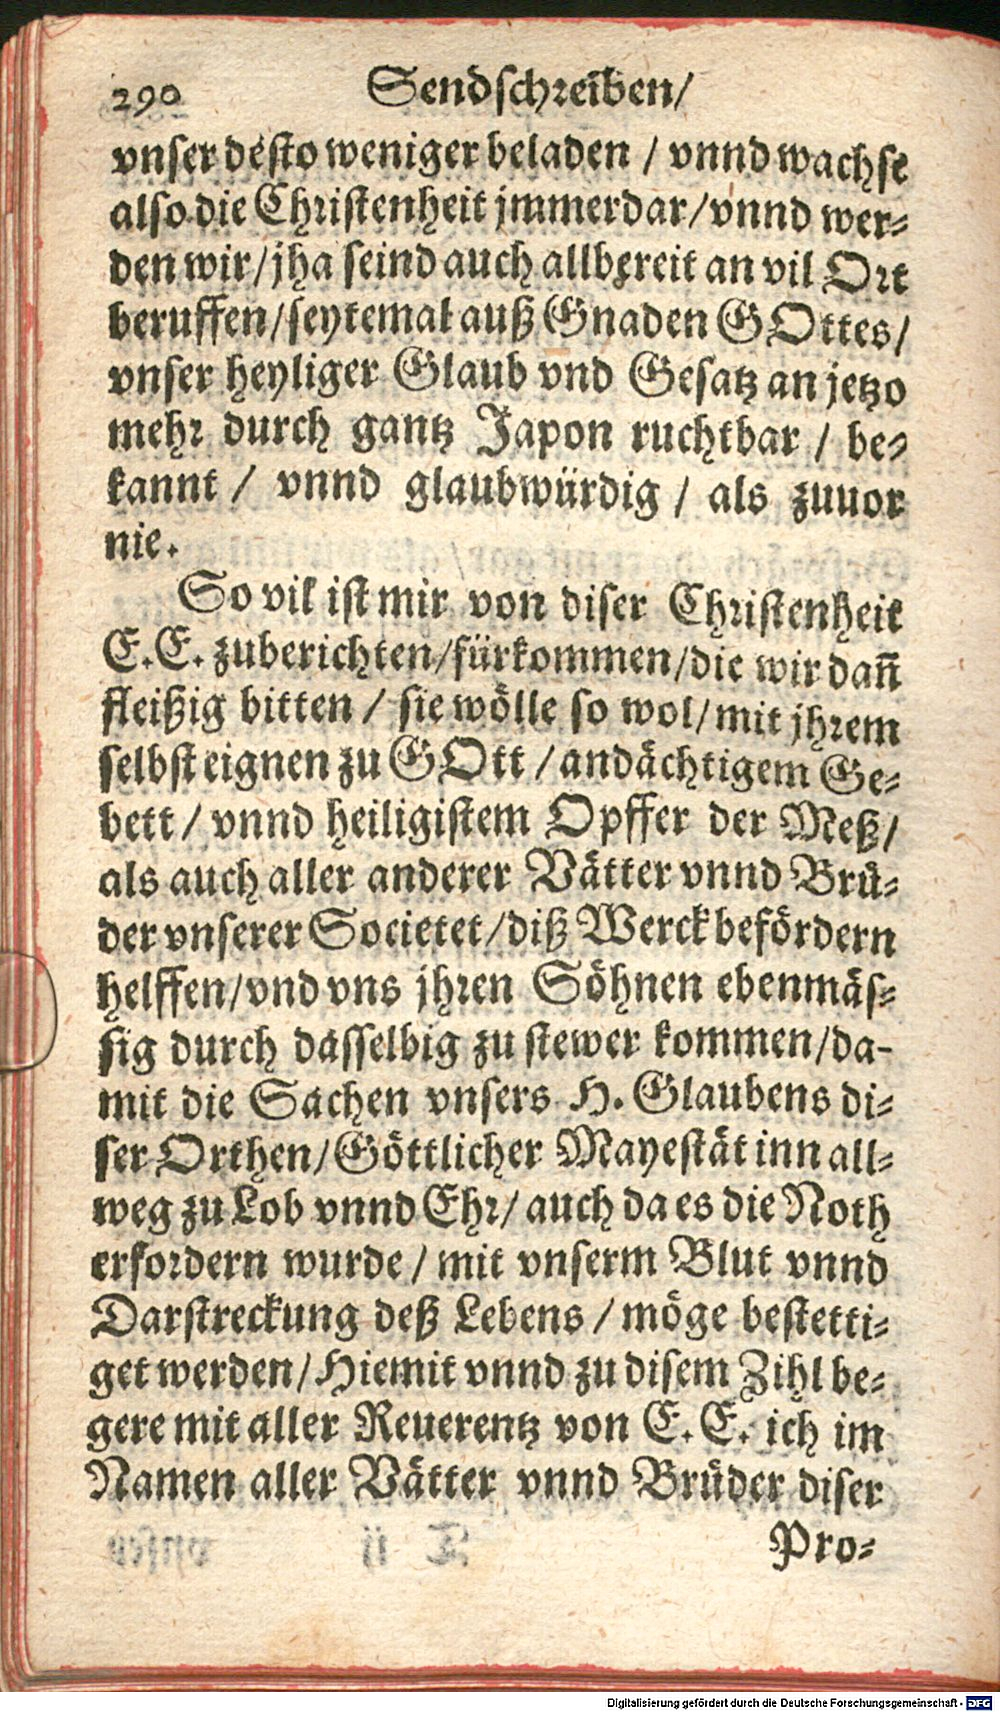 290 Sendschreiben/
vnser desto weniger beladen / vnnd wachse
also die Christenheit jmmerdar/vnnd wer-
den wir/jha seind auch allbereit an vil Ort
beruffen/seytemal auß Gnaden GOttes/
vnser heyliger Glaub vnd Gesatz an jetzo
mehr durch gantz Japon ruchtbar / be-
kannt / vnnd glaubwürdig / als zuuor
nie.
So vil ist mir von diser Christenheit
E.E. zuberichten/fürkommen/die wir dañ
fleißig bitten / sie wölle so wol/mit jhrem
selbst eignen zu GOtt / andächtigem Ge-
bett / vnnd heiligistem Opffer der Meß/
als auch aller anderer Vätter vnnd Brü-
der vnserer Societet/diß Werck befördern
helffen/vnd vns jhren Söhnen ebenmäs-
sig durch dasselbig zu stewer kommen/da-
mit die Sachen vnsers H. Glaubens di-
ser Orthen/Göttlicher Mayestät inn all-
weg zu Lob vnnd Ehr/ auch da es die Noth
erfordern wurde / mit vnserm Blut vnnd
Darstreckung deß Lebens / möge bestetti-
get werden/Hiemit vnnd zu disem Zihl be-
gere mit aller Reuerentz von E. E. ich im
Namen aller Vätter vnnd Brüder diser
Pro-
Digitalisierung gefördert durch die Deutsche Forschungsgemeinschaft - DFG